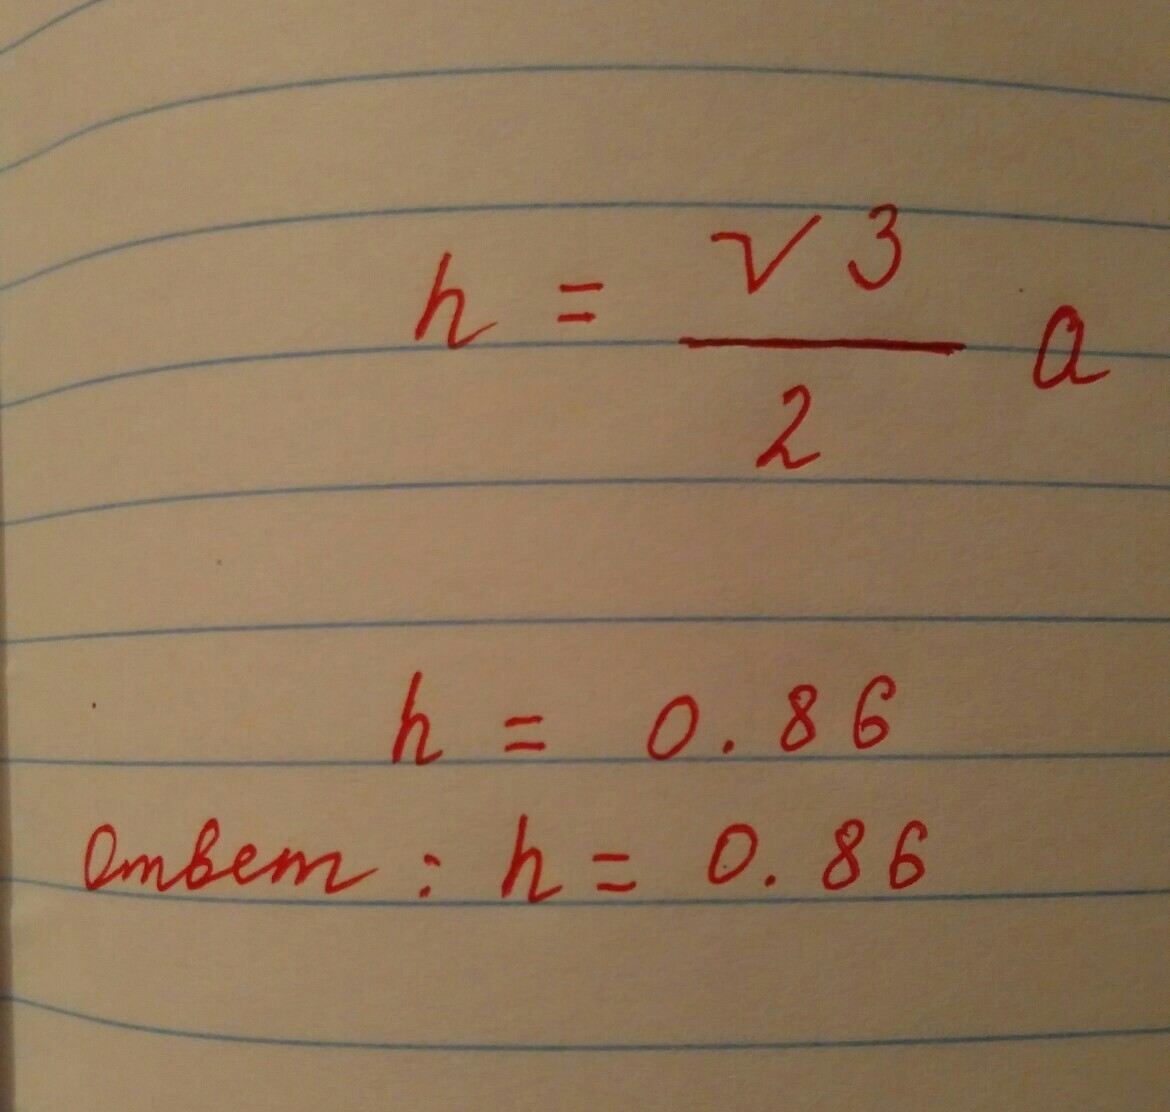 h = √3/2 a
h = 0.86
Ответ : h = 0.86